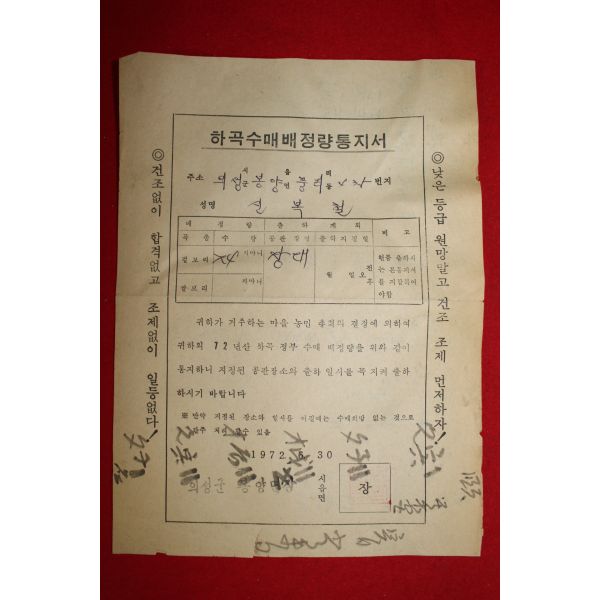 하곡수매배정량통지서
주소 의성 시군 봉양 읍면 풍리 리동 번지
성명 신복철
배정량 출하계획 비고
곡종 수량 공판장명 출하지정일
겉보리 가마니 장대 월 일 오전후 현품 출하시는 본통지서를 지참하여야함
쌀보리 가마니
귀하가 거주하는 마을 농민 총회의 결정에 의하여
귀하의 72년산 하곡 정부 수매 배정량을 위와 같이
통지하니 지정된 공판장소와 출하 일시를 꼭 지켜 출하
하시기 바랍니다
※ 만약 지정된 장소와 일시를 어길때는 수매희망 없는 것으로
간주 처리 할수 있음
1972. 6. 30
의성군 시읍면 장
◎건조없이 합격없고 조제없이 일등없다!
◎낮은 등급 원망말고 건조 조제 먼저하자!